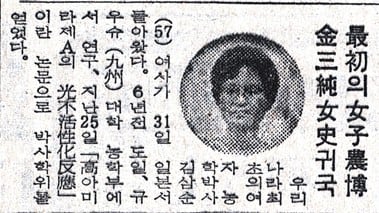 最初의 女子農博
金三純女史귀국
우리
나라최
초의여
자 농
학박사
김삼순
(57) 여사가 31일 일본서
돌아왔다. 6년전 도일, 규
우슈(九州) 대학 농학부에
서 연구, 지난25일 「高아미
라제A의 光不活性化反應」
이란 논문으로 박사학위를
얻었다.